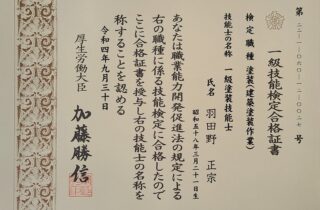 第22-1-060-12-0027号
一級技能検定合格証書
検定職種 塗装(建築塗装作業)
技能士の名称 一級塗装技能士
氏名 羽田野 正宗
昭和五十八年三月二十一日生
あなたは職業能力開発促進法の規定による
右の職種に係る技能検定に合格したので
ここに合格証書を授与し右の技能士の名称を
称することを認める
令和四年九月三十日
厚生労働大臣 加藤勝信